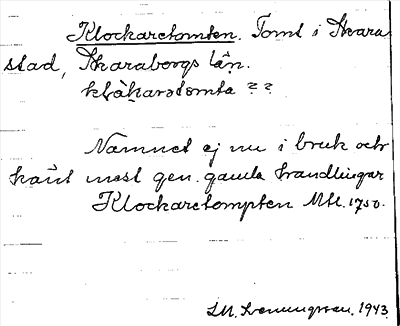 Klockaretomten. Tomt i Skara
stad, Skaraborgs län.
klȧkarətomta ??
Namnet ej nu i bruk och
känt mest gen. gamla handlingar
Klockaretompten Mtl. 1750.
1943